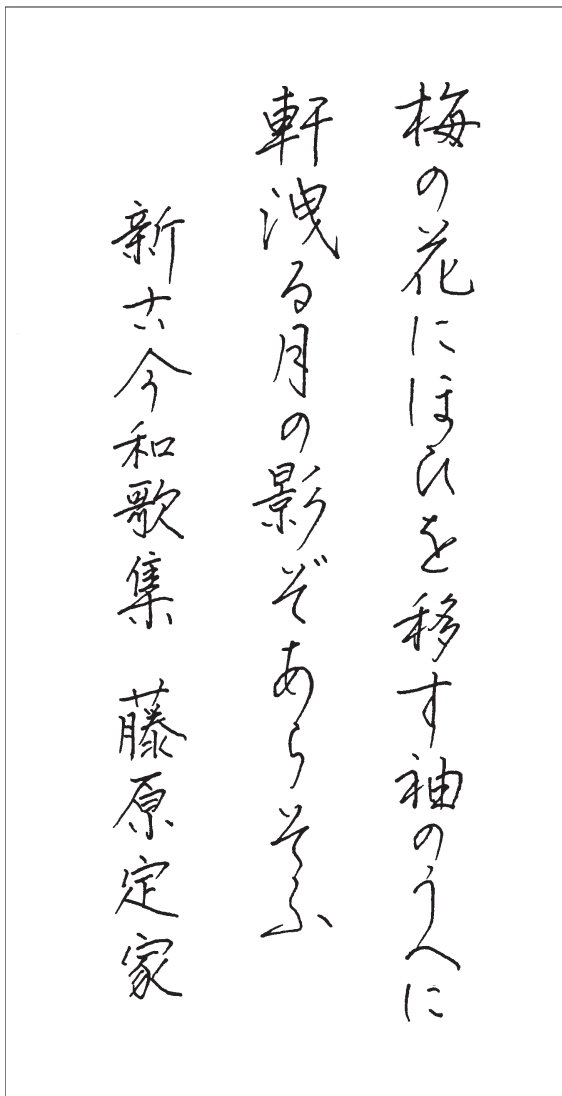 梅の花にほひを移す袖のうへに
軒洩る月の影ぞあらそふ
新古今和歌集 藤原定家